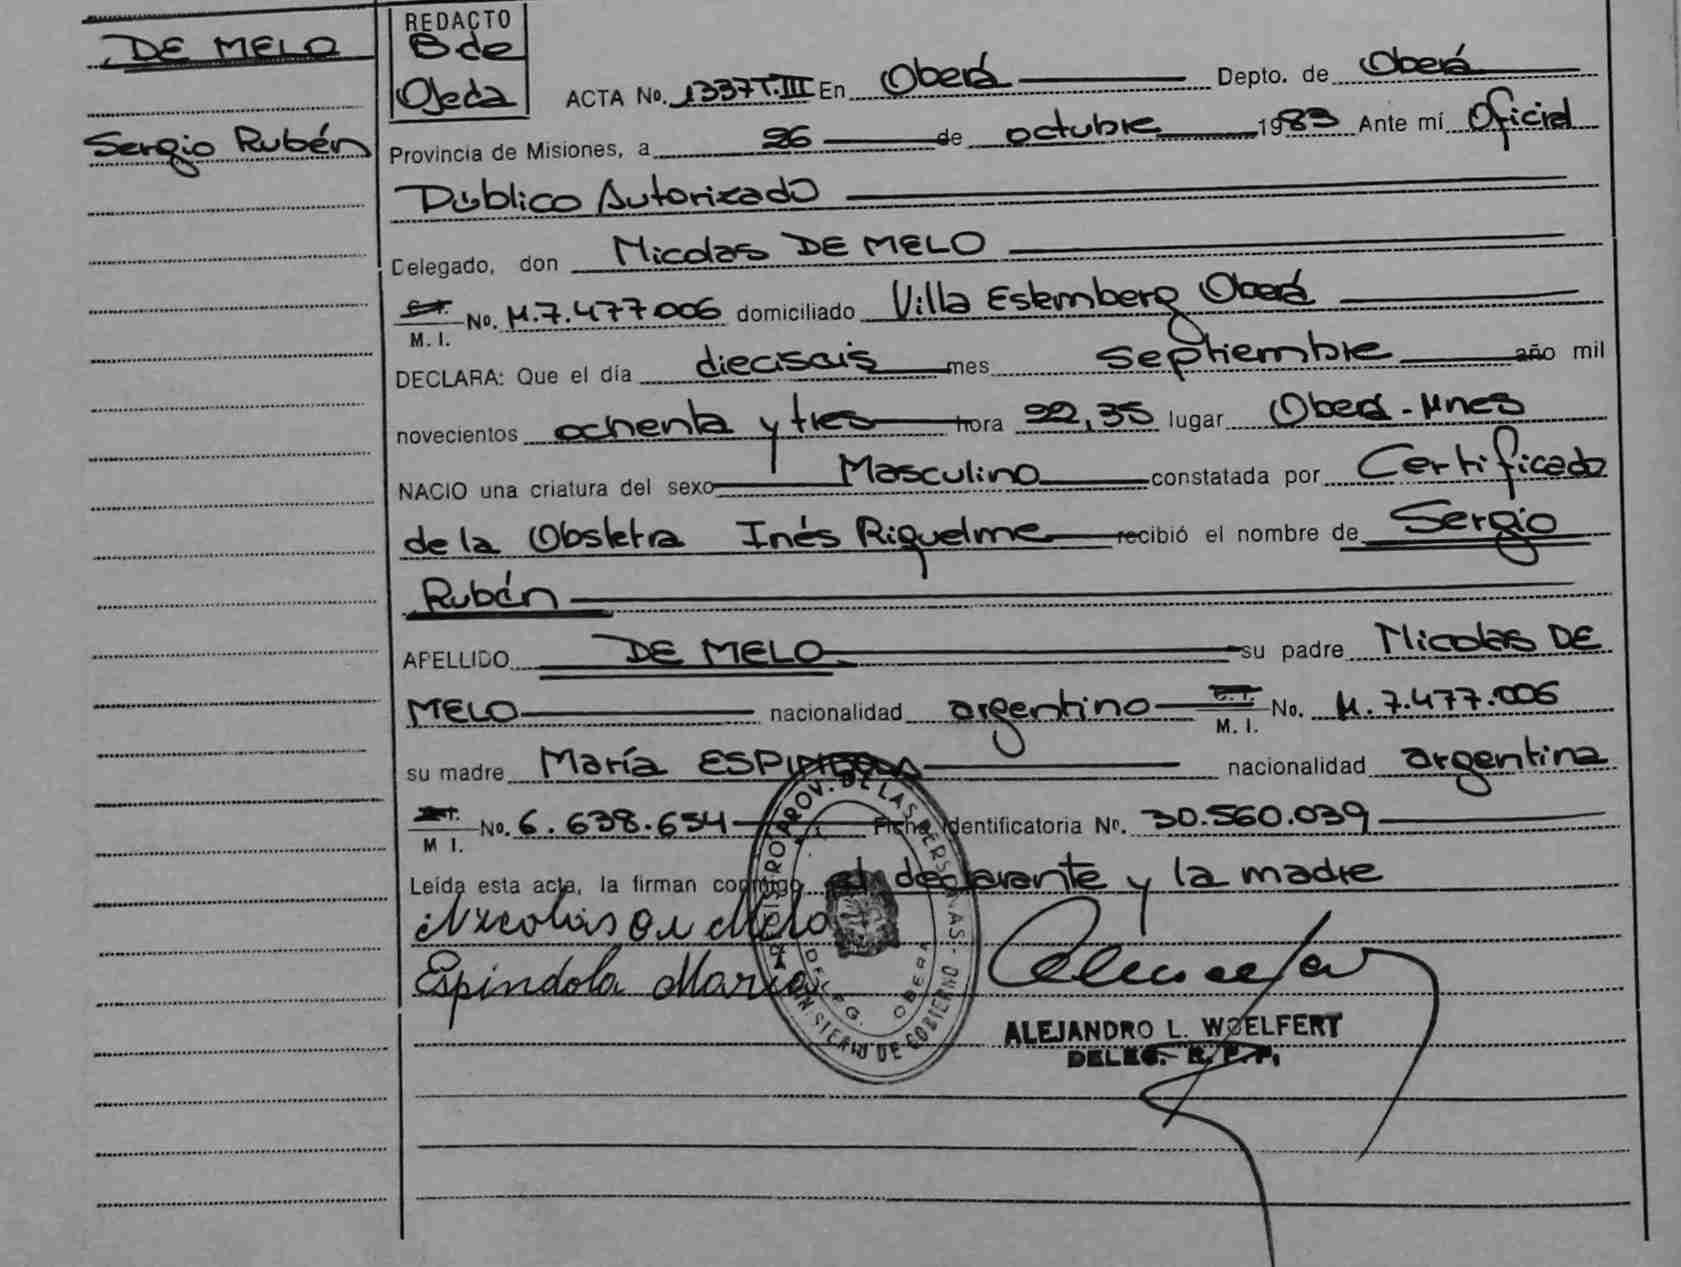 DE MELO
Sergio Rubén
REDACTO
B de
Ojeda
ACTA No. 1337 T.III En Oberá Depto. de Oberá
Provincia de Misiones, a 26 de octubre 1983 Ante mí Oficial
Público Autorizado
Delegado, don Nicolas DE MELO
C.I. M.I. No. M.7.477.006 domiciliado Villa Estemberg Oberá
DECLARA: Que el día dieciseis mes septiembre año mil
novecientos ochenta y tres hora 22,35 lugar Oberá - Mnes
NACIO una criatura del sexo Masculino constatada por Certificado
de la Obstetra Inés Riquelme recibió el nombre de Sergio
Rubén
APELLIDO DE MELO su padre Nicolas DE
MELO nacionalidad argentino C.I. M.I. No. M.7.477.006
su madre María ESPINDOLA nacionalidad argentina
M I. No. 6.638.654 Ficha Identificatoria No. 30.560.039
Leída esta acta, la firman conmigo el declarante y la madre
Nicolás De Melo
Espíndola María
REGISTRO PROV. DE LAS PERSONAS - MINISTERIO DE GOBIERNO
DELEG. OBERA
ALEJANDRO L. WOELFERT
DELEG. R. P. P.